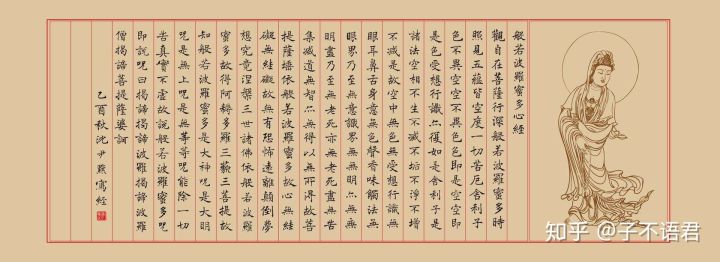 般若波羅蜜多心經
觀自在菩薩行深般若波羅蜜多時
照見五蘊皆空度一切苦厄舍利子
色不異空空不異色色即是空空即
是色受想行識亦復如是舍利子是
諸法空相不生不滅不垢不淨不增
不減是故空中無色無受想行識無
眼耳鼻舌身意無色聲香味觸法無
眼界乃至無意識界無無明亦無無
明盡乃至無老死亦無老死盡無苦
集滅道無智亦無得以無所得故菩
提薩埵依般若波羅蜜多故心無絓
礙無絓礙故無有恐怖遠離顛倒夢
想究竟涅槃三世諸佛依般若波羅
蜜多故得阿耨多羅三藐三菩提故
知般若波羅蜜多是大神呪是大明
呪是無上呪是無等等呪能除一切
苦真實不虛故說般若波羅蜜多呪
即說呪曰揭諦揭諦波羅揭諦波羅
僧揭諦菩提薩婆訶
乙酉秋沈尹默寫經
知乎 @子不语君